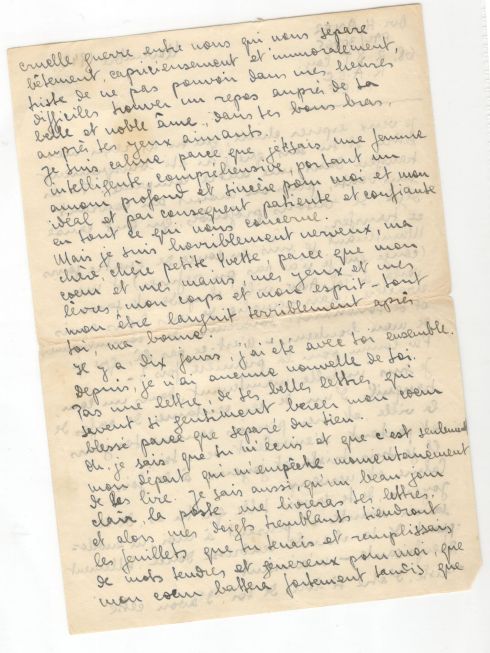 cruelle guerre entre nous qui nous sépare
bêtement, capricieusement et immoralement,
triste de ne pas pouvoir dans mes heures
difficiles trouver un repos auprès de ta
belle et noble âme, dans tes bons bras,
auprès tes yeux aimants.
Je suis calme parce que je sais une femme
intelligente, compréhensive, portant un
amour profond et sincère pour moi et mon
idéal et par conséquent patiente et confiante
en tout ce qui nous concerne.
Mais je suis horriblement nerveux, ma
chère chère petite Yvette, parce que mon
coeur et mes mains, mes yeux et mes
lèvres, mon corps et mon esprit – tout
mon être languit terriblement après
toi, ma bonne.
Il y a dix jours, j'ai été avec toi ensemble.
Depuis, je n'ai aucune nouvelle de toi.
Pas une lettre de tes belles lettres, qui
savent si gentiment bercer mon coeur
blessé parce que séparé du tien.
Oh, je sais que tu m'écris et que c'est seulement
mon départ qui m'empêche momentanément
de les lire. Je sais aussi, qu'un beau jour
clair, la poste me livrera tes lettres.
et alors mes doigts tremblants tiendront
les feuillets que tu tenais et remplissais
de mots tendres et généreux pour moi, que
mon coeur battera fortement tandis que